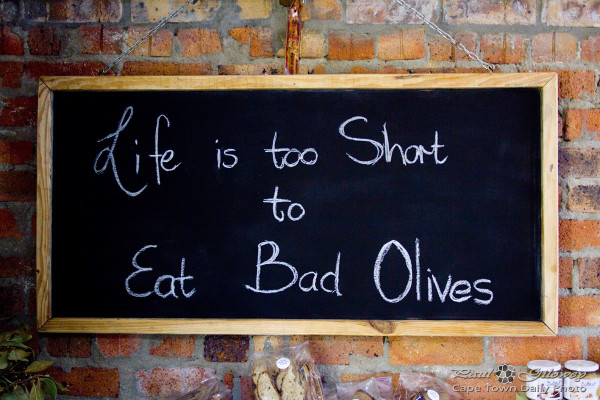 Life is too Short
to
Eat Bad Olives
Cape Town Daily Photo